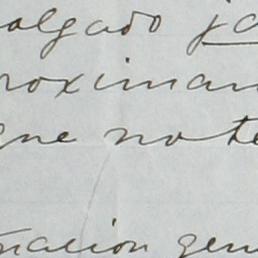 algado ja
roximan
que no te
mación gen